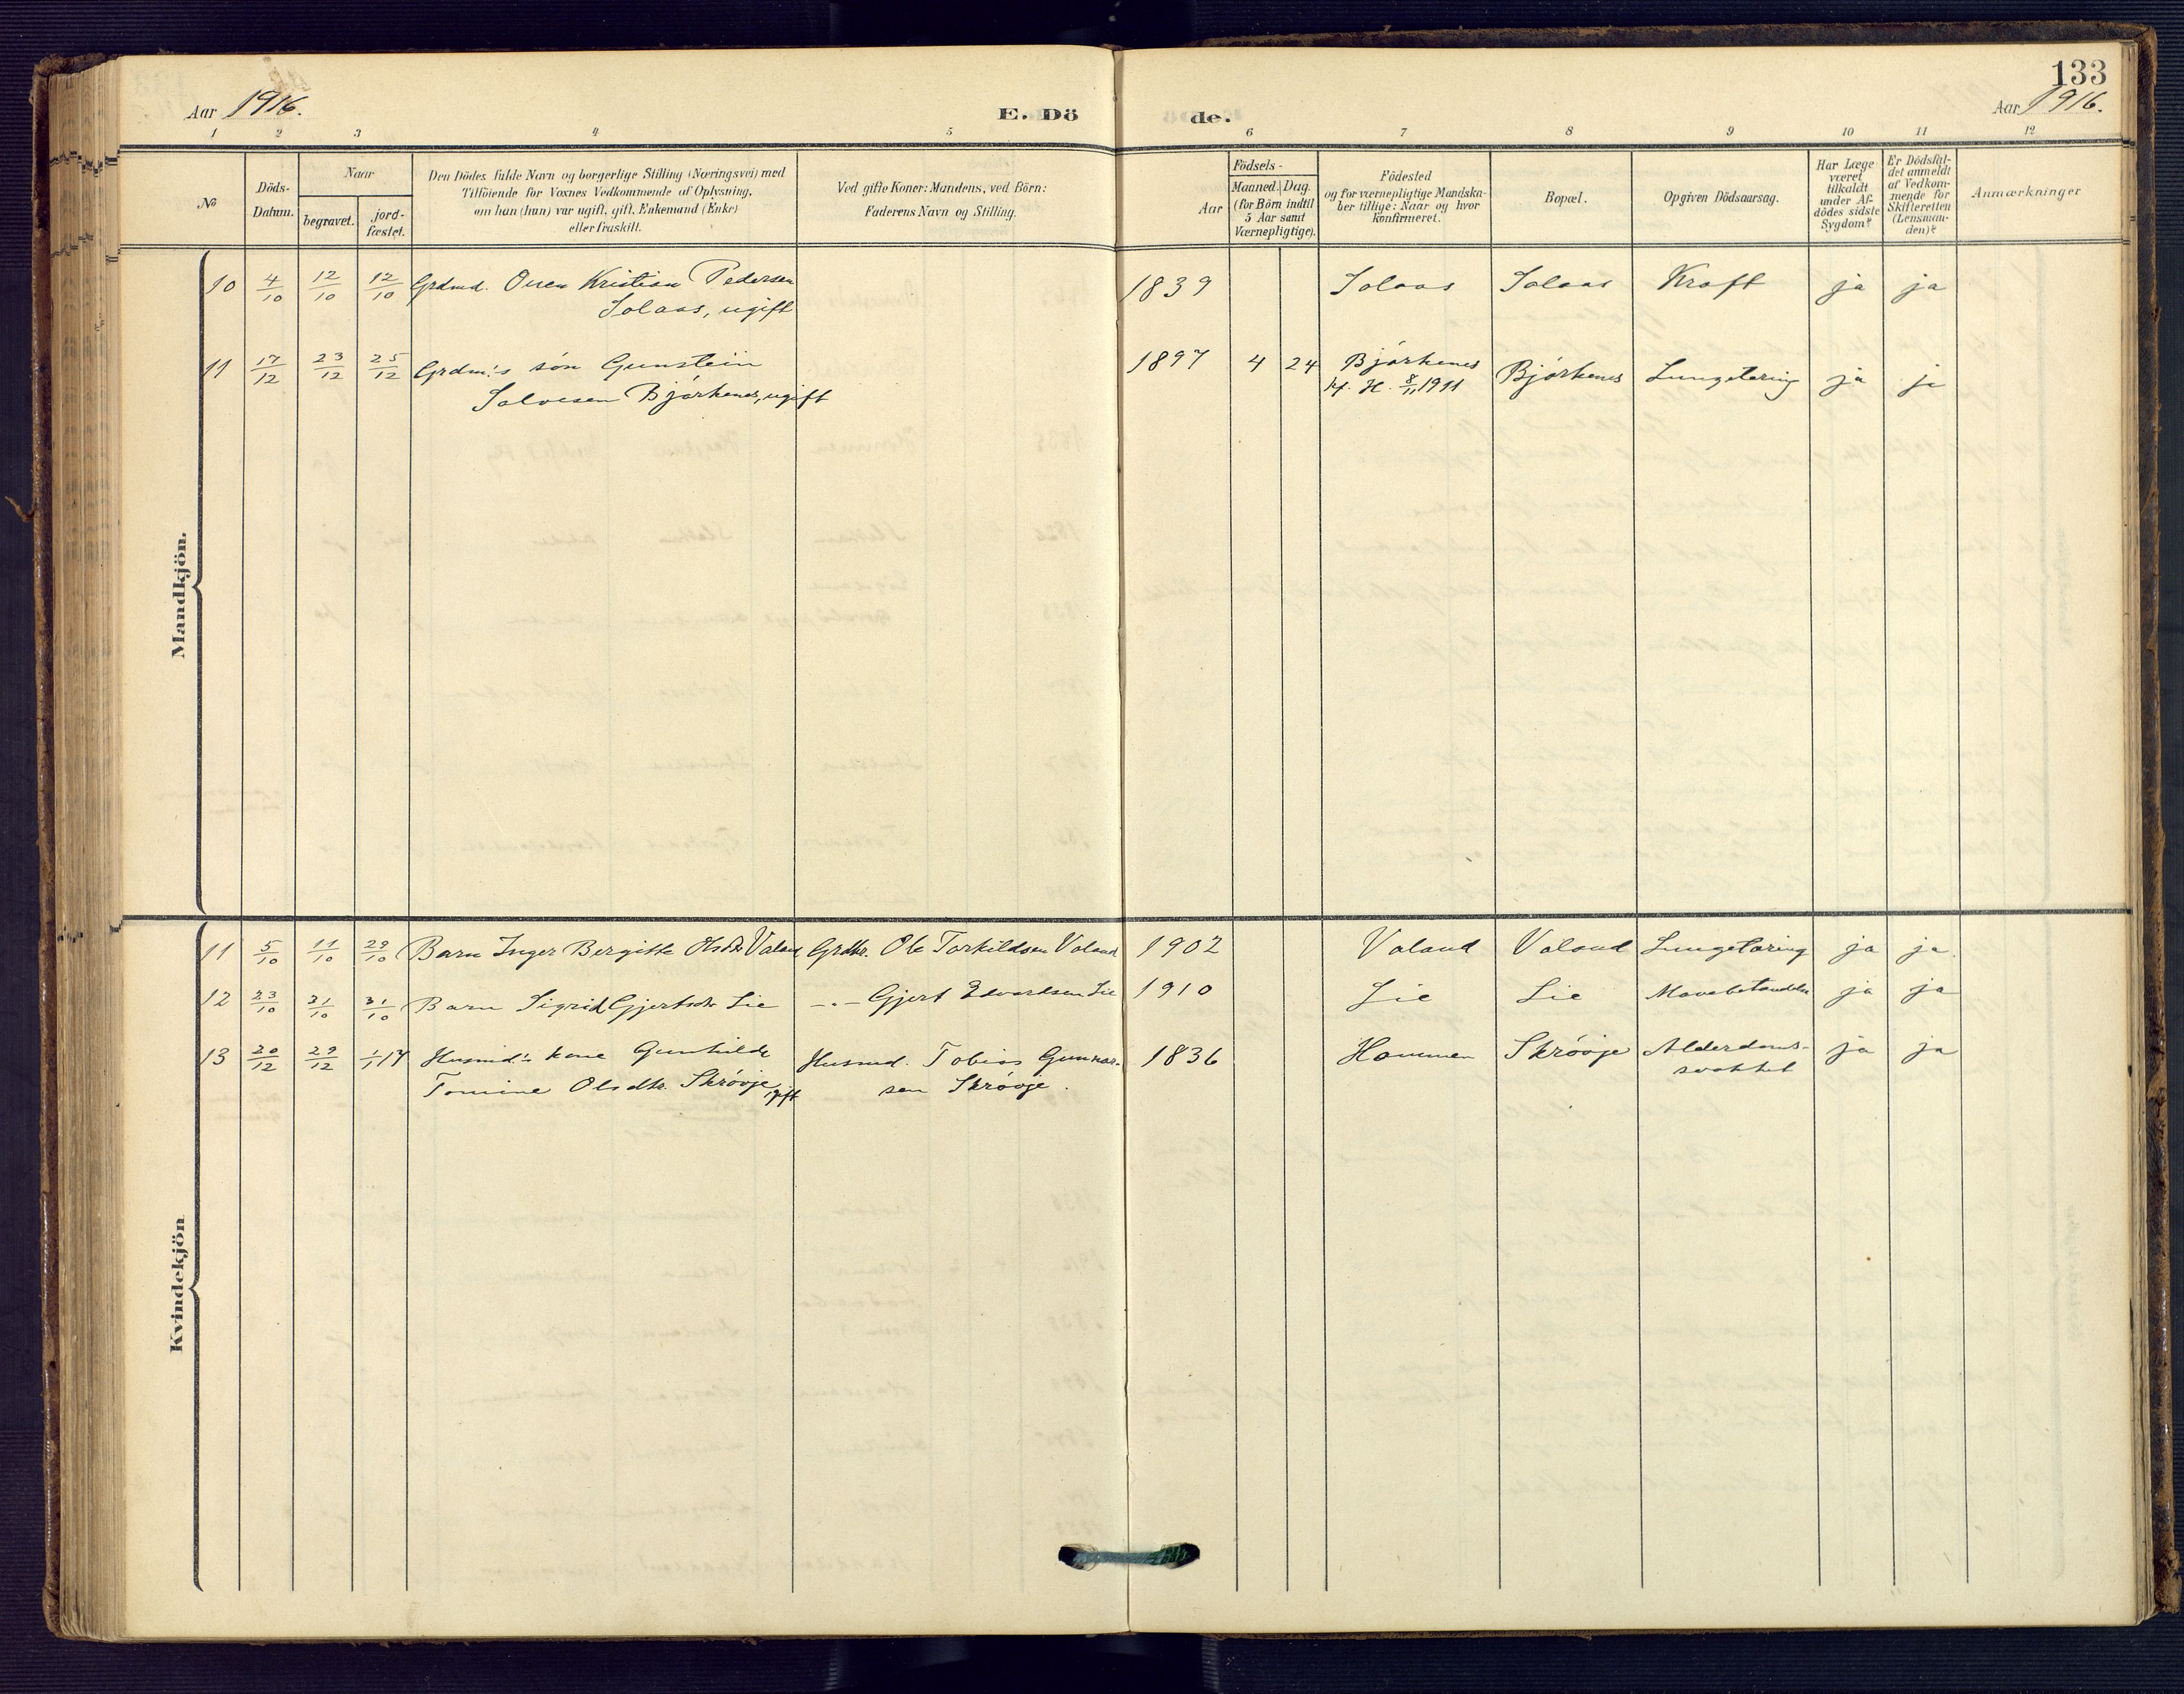 133
Aar 1916. E. Dö de. Aar 1916.
1 2 3 4 5 6 7 8 9 10 11 12
No
Döds-
Datum.
Naar
begravet.
jord-
fæstet.
Den Dödes fulde Navn og borgerlige Stilling (Næringsvei) med
Tilföiende for Voxnes Vedkommende af Oplysning,
om han (hun) var ugift, gift, Enkemand (Enke)
eller fraskilt.
Ved gifte Koner: Mandens, ved Börn:
Faderens Navn og Stilling.
Födsels-
Aar
Maaned. Dag.
(for Börn indtil
5 Aar samt
Værnepligtige).
Födested
og for værnepligtige Mandska-
ber tillige: Naar og hvor
konfirmeret.
Bopæl.
Opgiven Dödsaarsag.
Har Læge
været
tilkaldt
under Af-
dödes sidste
Sygdom?
Er Dödsfal-
det anmeldt
af Vedkom-
mende for
Skifteretten
(Lensman-
den)?
Anmærkninger
Mandkjön.
10 4/10 12/10 12/10 Grdmd. Oven Kristian Pedersen 1839 Solaas Solaas Kræft ja ja
Solaas, ugift
11 17/12 23/12 25/12 Grdm's sön Gunstein 1897 4 24 Björkenes Björkenes Lungetæring ja ja
Solvesen Björkenes, ugift 8/11 1911
Kvindekjön
11 5/10 11/10 29/10 Barn Inger Bergitte Olsdtr Valand Grdbr. Ole Torkildsen Valand 1902 Valand Valand Lungetæring ja ja.
12 23/10 31/10 31/10 Barn Sigrid Gjertsdtr Lie -"- Gjert Edvardsen Lie 1910 Lie Lie Mavebetændelse ja ja
13 20/12 29/12 1/1 17 Husmd's kone Gunhilde Husmd. Tobias Gunnar- 1836 Hommen Skröoje Alderdoms- ja ja
Tomine Olsdtr. Skröoje, gift sen Skröoje. svakhet